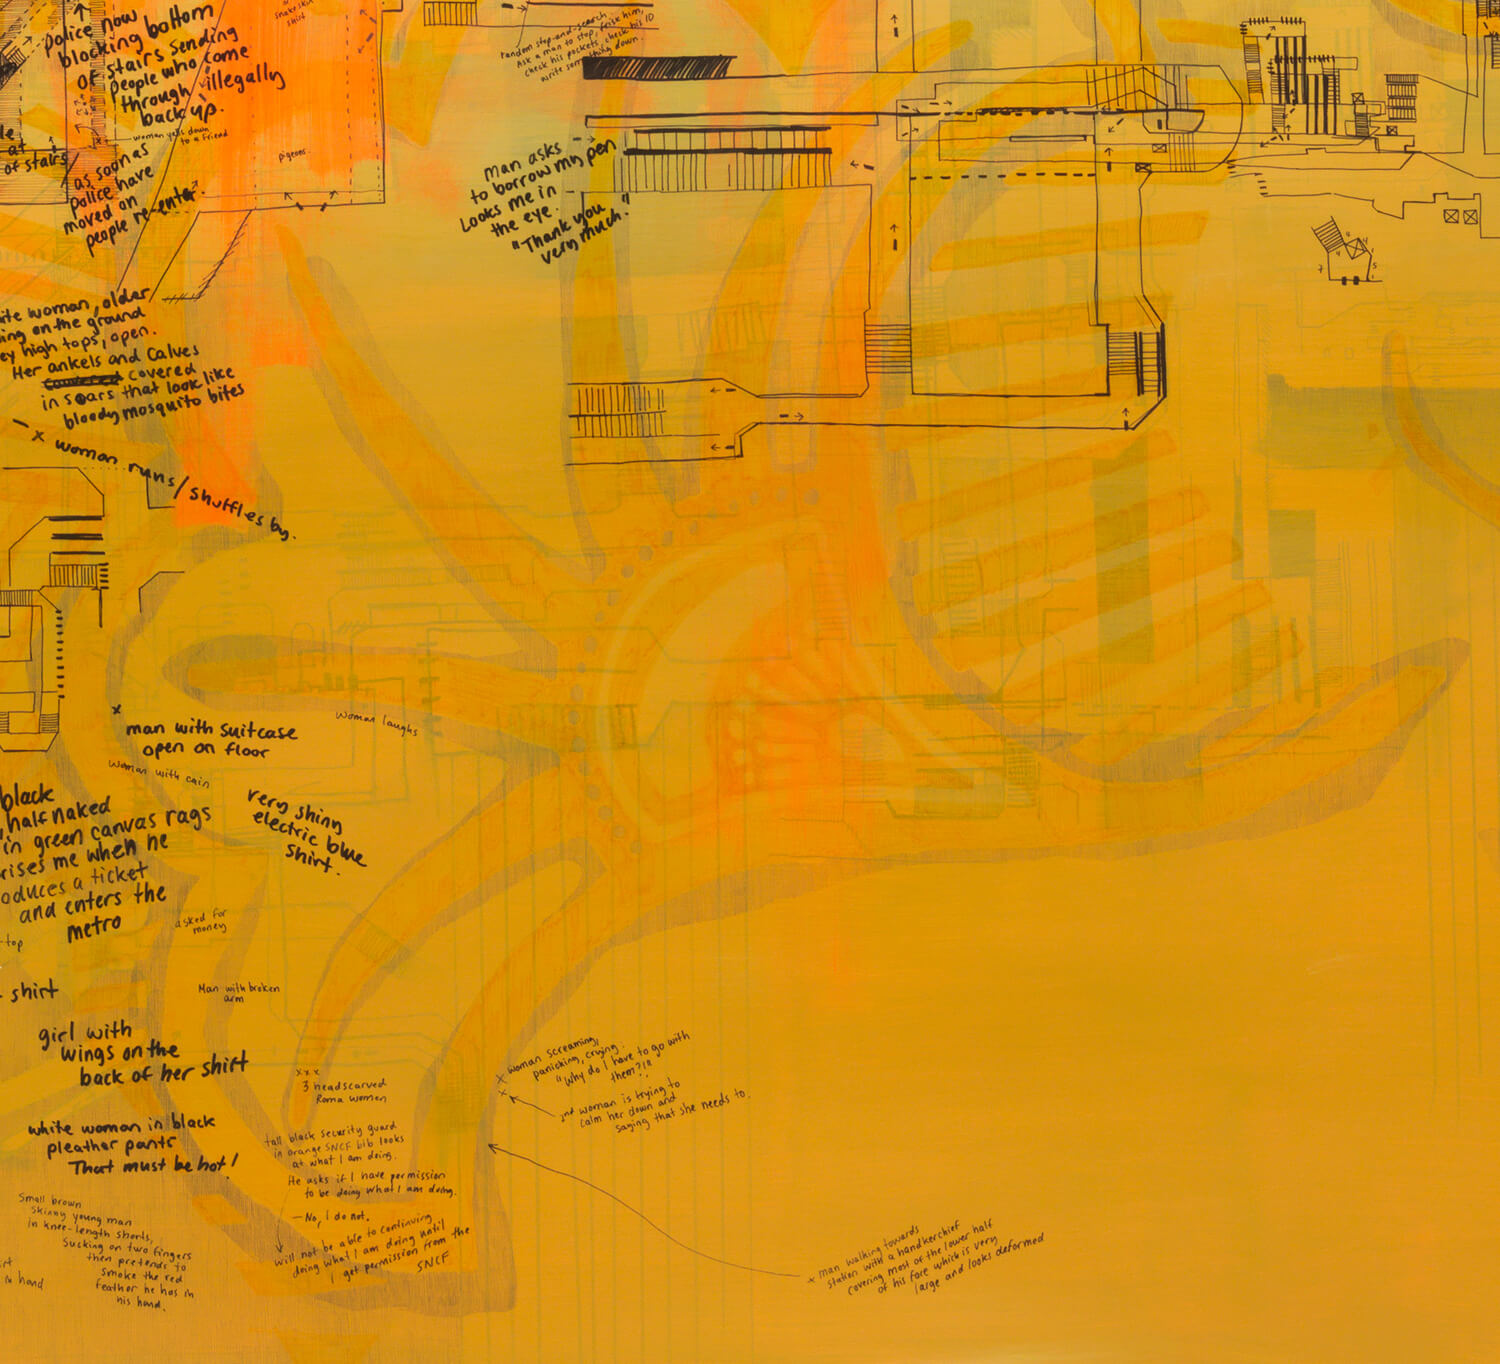 police now
blocking bottom
of stairs sending
people who come
through illegally
back up.
woman yells down
to a friend
at
of stairs
as soon as
police have
moved on
people re-enter.
snakeskin
shirt
pigeons.
random stop-and-search
Ask a man to stop, frisk him,
check his pockets, check his ID
write something down.
man asks
to borrow my pen
Looks me in
the eye.
"Thank you
very much."
7
4
4
1
5
1
woman, older
on the ground
high tops, open.
Her ankels and calves
covered
in scars that look like
bloody mosquito bites
x woman runs/shuffles by.
x
man with suitcase
open on floor
Woman laughs
Woman with cain
very shiny
electric blue
shirt.
black
, half naked
in green canvas rags
rises me when he
oduces a ticket
and enters the
metro
asked for
money
top
shirt
Man with broken
arm
girl with
wings on the
back of her shirt
x x x
3 headscarved
Roma women
white woman in black
pleather pants
That must be hot!
x woman screaming,
panicking, crying.
"Why do I have to go with
them?!"
x
2nd woman is trying to
calm her down and
saying that she needs to.
tall black security guard
in orange SNCF bib looks
at what I am doing.
He asks if I have permission
to be doing what I am doing.
— No, I do not.
Will not be able to continuing
doing what I am doing until
I get permission from the
SNCF
Small brown
skinny young man
in knee-length shorts,
sucking on two fingers
then pretends to
smoke the red
feather he has in
his hand.
hand
x man walking towards
station with a handkerchief
covering most of the lower half
of his face which is very
large and looks deformed